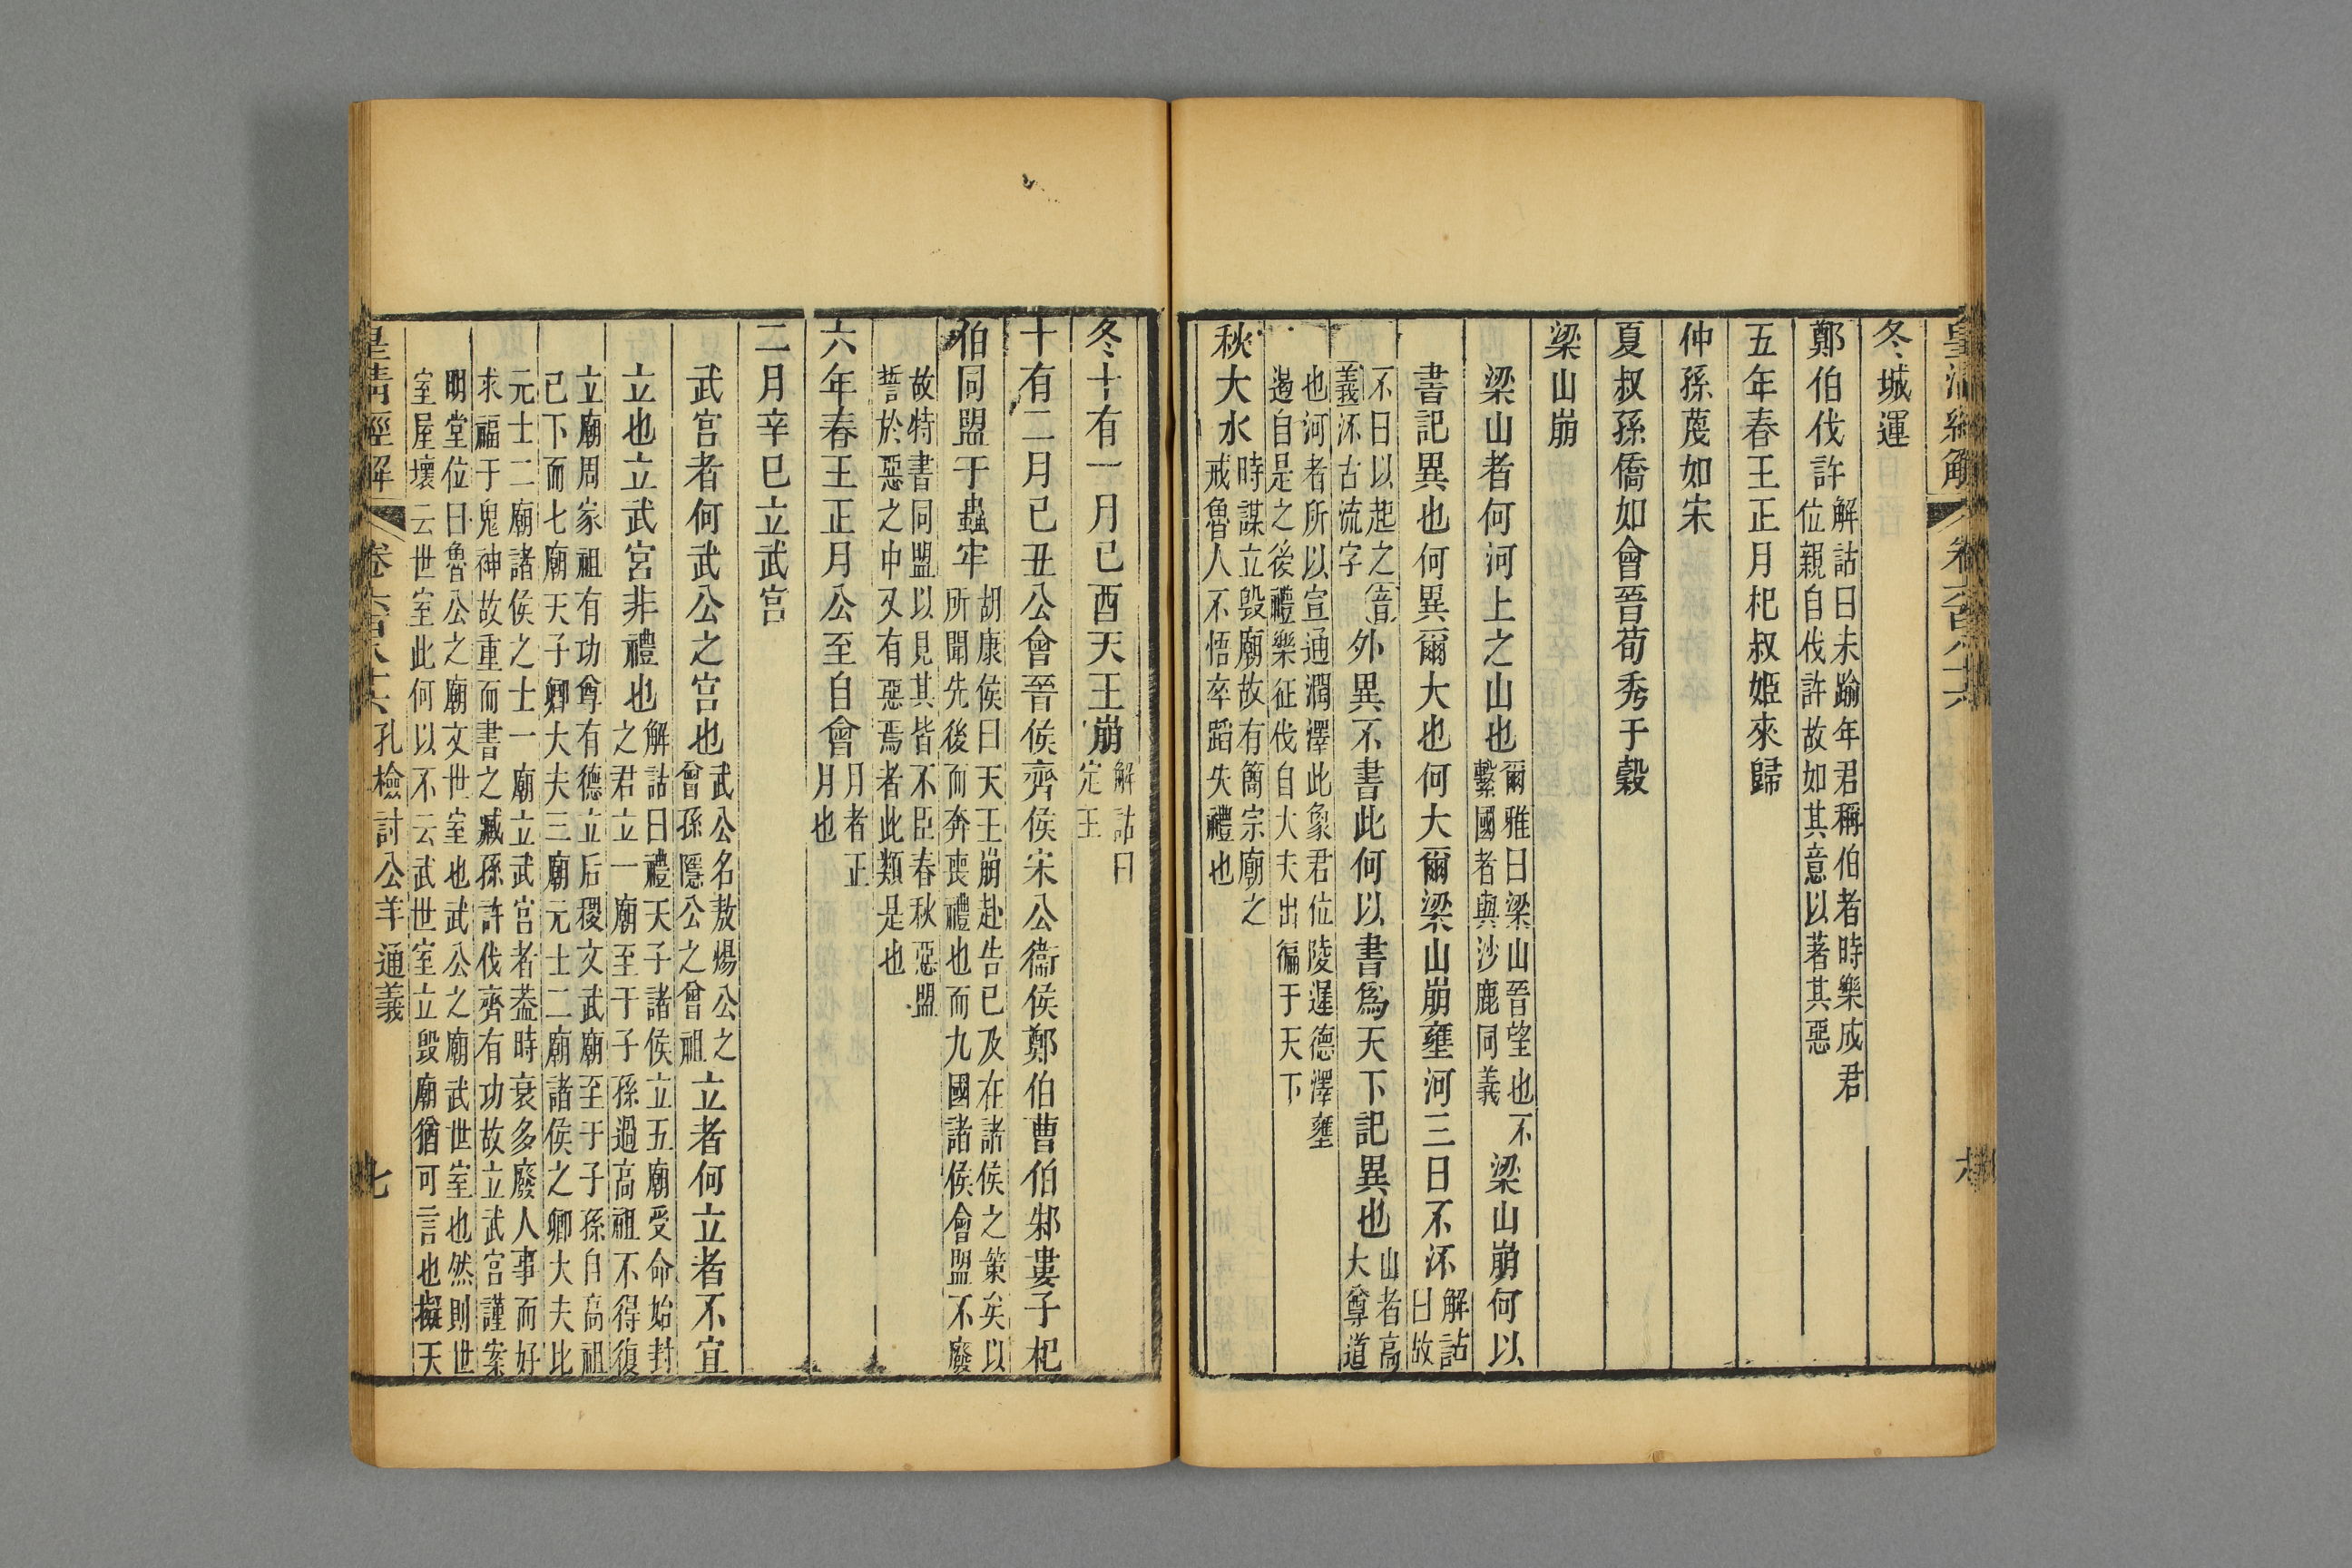 皇清經解 卷六百八十六
冬城運
鄭伯伐許解詁曰未踰年君稱伯者時樂成君位親自伐許故如其意以著其惡
五年春王正月杞叔姬來歸
仲孫蔑如宋
夏叔孫僑如會晉荀秀于穀
梁山崩
梁山者何河上之山也爾雅曰梁山晉望也不繫國者與沙鹿同義梁山崩何以
書記異也何異爾大也何大爾梁山崩壅河三日不㳅解詁曰故
不日以起之音義㳅古流字外異不書此何以書爲天下記異也山者高大尊道
也河者所以宣通潤澤此象君位陵遲德澤壅遏自是之後禮樂征伐自大夫出徧于天下
秋大水時謀立毀廟故有簡宗廟之戒魯人不悟卒蹈失禮也
冬十有一月己酉天王崩解詁曰定王
十有二月己丑公會晉侯齊侯宋公衞侯鄭伯曹伯邾婁子杞
伯同盟于蟲牢胡康侯曰天王崩赴告已及在諸侯之策矣以所聞先後而奔喪禮也而九國諸侯會盟不廢
故特書同盟以見其皆不臣春秋惡盟誓於惡之中又有惡焉者此類是也
六年春王正月公至自會月者正月也
二月辛巳立武宮
武宮者何武公之宮也武公名敖煬公之曾孫隱公之曾祖立者何立者不宜
立也立武宮非禮也解詁曰禮天子諸侯立五廟受命始封之君立一廟至于子孫過高祖不得復
立廟周家祖有功尊有德立后稷文武廟至于子孫自高祖已下而七廟天子卿大夫三廟元士二廟諸侯之卿大夫比
元士二廟諸侯之士一廟立武宮者葢時衰多廢人事而好求福于鬼神故重而書之臧孫許伐齊有功故立武宮謹案
明堂位曰魯公之廟文世室也武公之廟武世室也然則世室屋壞云世室此何以不云武世室立毀廟猶可言也擬天
皇清經解 卷六百八十六 孔檢討公羊通義 七